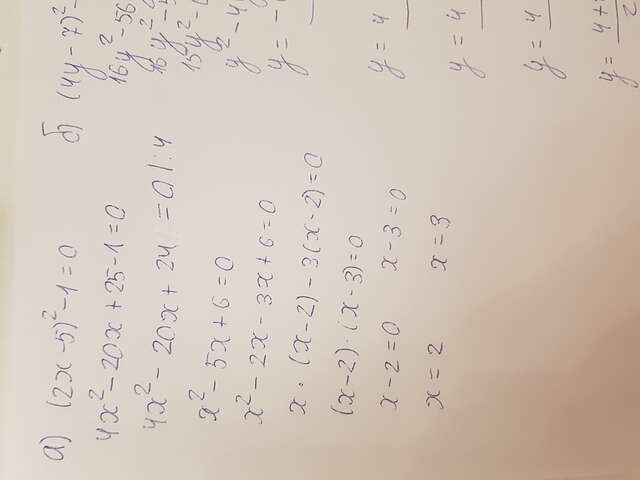 а) (2x-5)²-1=0
4x²-20x+25-1=0
4x²-20x+24=0 |:4
x²-5x+6=0
x²-2x-3x+6=0
x·(x-2)-3(x-2)=0
(x-2)·(x-3)=0
x-2=0 x-3=0
x=2 x=3
б) (4y-7)²-
16y²-56
16y²-
15y²-
y²-4
y=-
y=4
y=4
y=4
y=4+
2